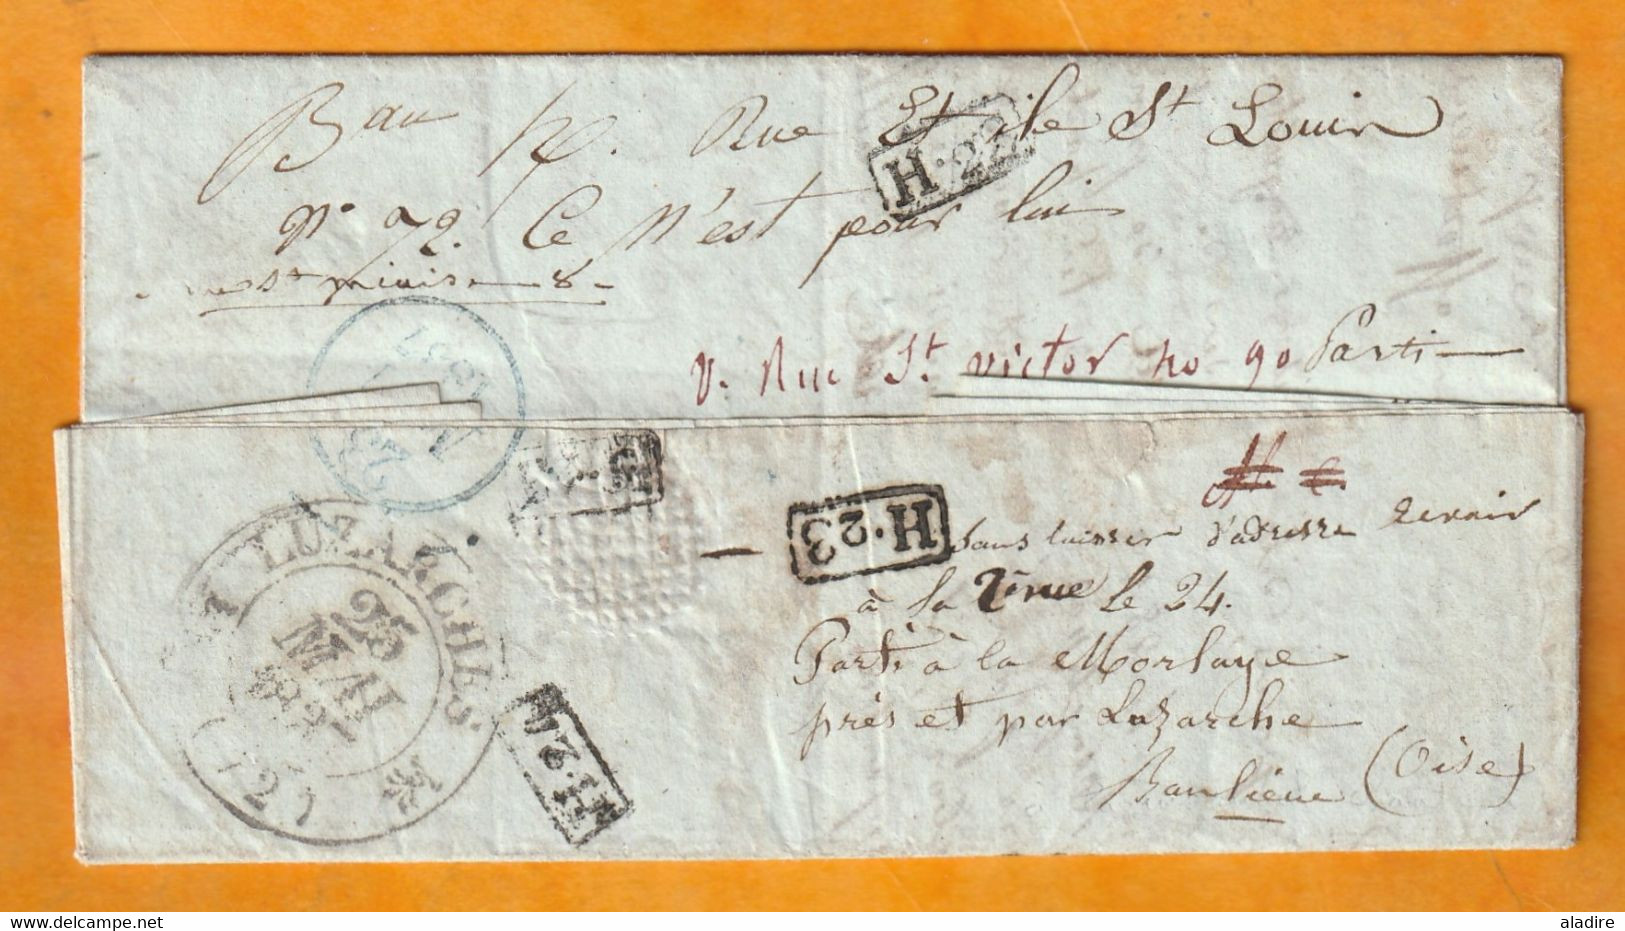 Bau Rue Et ile St Louin
H.22
N° 72. Ce N'est pour lui
1837
V. Rue St. victor no 90 Parti
H.23
Sans laisser d'adresse revoir
à la 2ème le 24.
Parti à la Morlaye
près et par Luzarche
Banlieue (Oise)
LUZARCHES
25
MAI
1837
(72)
H.24
delcampe.net
aladire